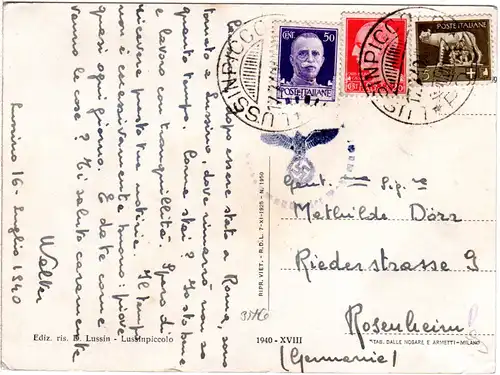 Cara, dopo essere stata a Roma, sono
tornata a Lussino, dove rimarrò non so
quanto tempo. Come stai? Io sto bene
e lavoro con tranquillità. Spero di
ricevere presto tue notizie. Il tempo
non è eccessivamente buono: piove
quasi ogni giorno. E da te come
vanno le cose? Ti saluto caramente
Walter
Lussino 16 Luglio 1940
LUSSINPICCOLO
CENT. 50
POSTE ITALIANE
POSTE ITALIANE
LUSSINPICCOLO
Gent. Sig.
Mathilde Dörr
Riederstrasse 9
Rosenheim
(Germania)
RIPR. VIET. - R.D.L. 7-XI-1925 - N. 1950
Ediz. ris. D. Lussin - Lussinpiccolo
1940 - XVIII
STAB. DALLE NOGARE E ARMETTI - MILANO